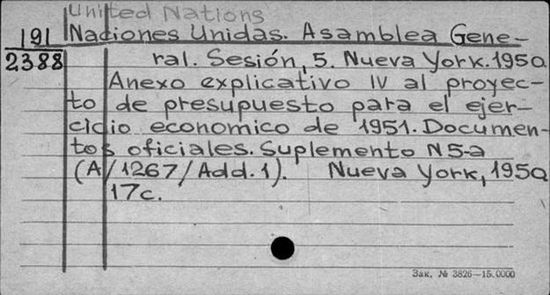 United Nations
191 Naciones Unidas. Asamblea Gene-
2388 ral. Sesión, 5. Nueva York. 1950
Anexo explicativo IV al proyec-
to de presupuesto para el ejer-
cicio economico de 1951. Documen-
tos oficiales. Suplemento N5-a
(A/1267/Add.1). Nueva York, 1950
17c.
Зак. № 3826—15.0000